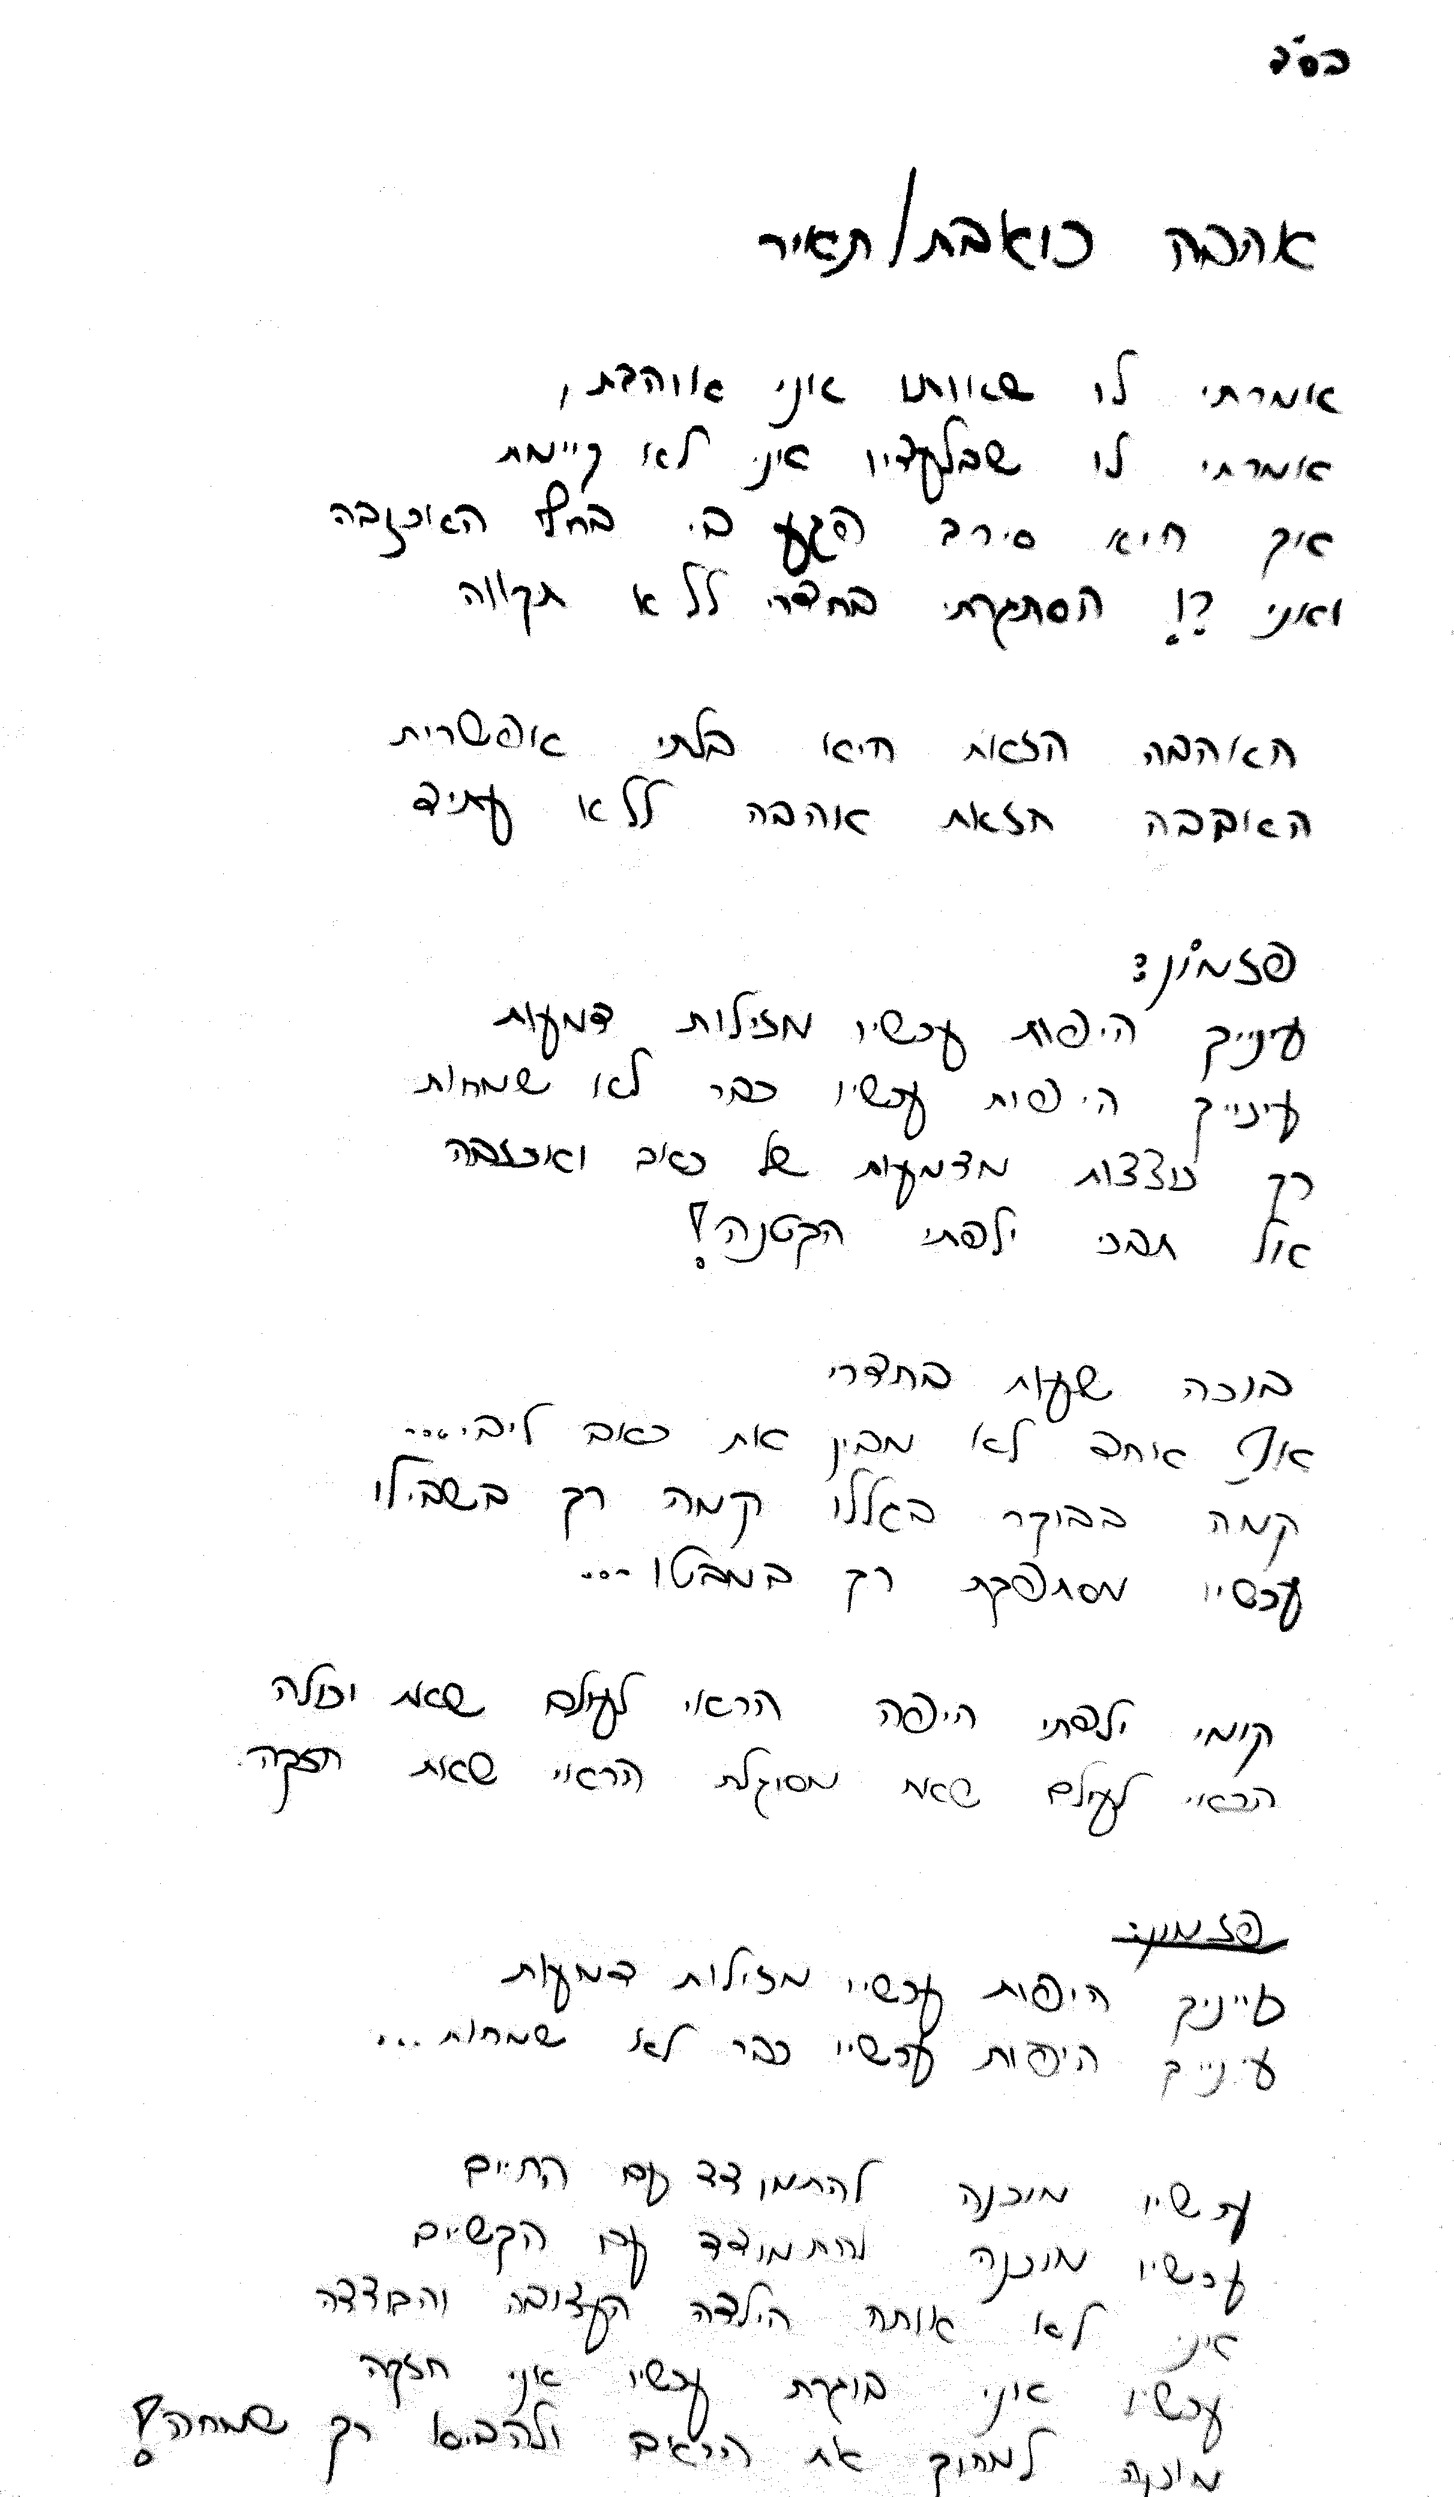 בס"ד
אהבה כואבת/תאיר
אמרתי לו שאותו אני אוהבת,
אמרתי לו שבלעדיו אני לא קיימת
איך היא סירב פגע בי בחץ האכזבה
ואני ?! הסתגרתי בחדרי ללא תקווה
האהבה הזאת היא בלתי אפשרית
האהבה הזאת אהבה ללא עתיד
פזמון:
עינייך היפות עכשיו מזילות דמעות
עינייך היפות עכשיו כבר לא שמחות
רק נוצצות מדמעות של כאב ואכזבה
אל תבכי ילדתי הקטנה!
בוכה שעות בחדרי
אף אחד לא מבין את כאב ליבי....
קמה בבוקר בגללו קמה רק בשבילו
עכשיו מסתפקת רק במבטו...
קומי ילדתי היפה הראי לעולם שאת יכולה
הראי לעולם שאת מסוגלת הראי שאת חזקה.
פזמון:
עינייך היפות עכשיו מזילות דמעות
עינייך היפות עכשיו כבר לא שמחות...
עכשיו מוכנה להתמודד עם החיים
עכשיו מוכנה להתמודד עם הקשיים
אני לא אותה הילדה העצובה והבודדה
עכשיו אני בוגרת עכשיו אני חזקה
מוכנה למחוק את הכאב ולהביא רק שמחה!